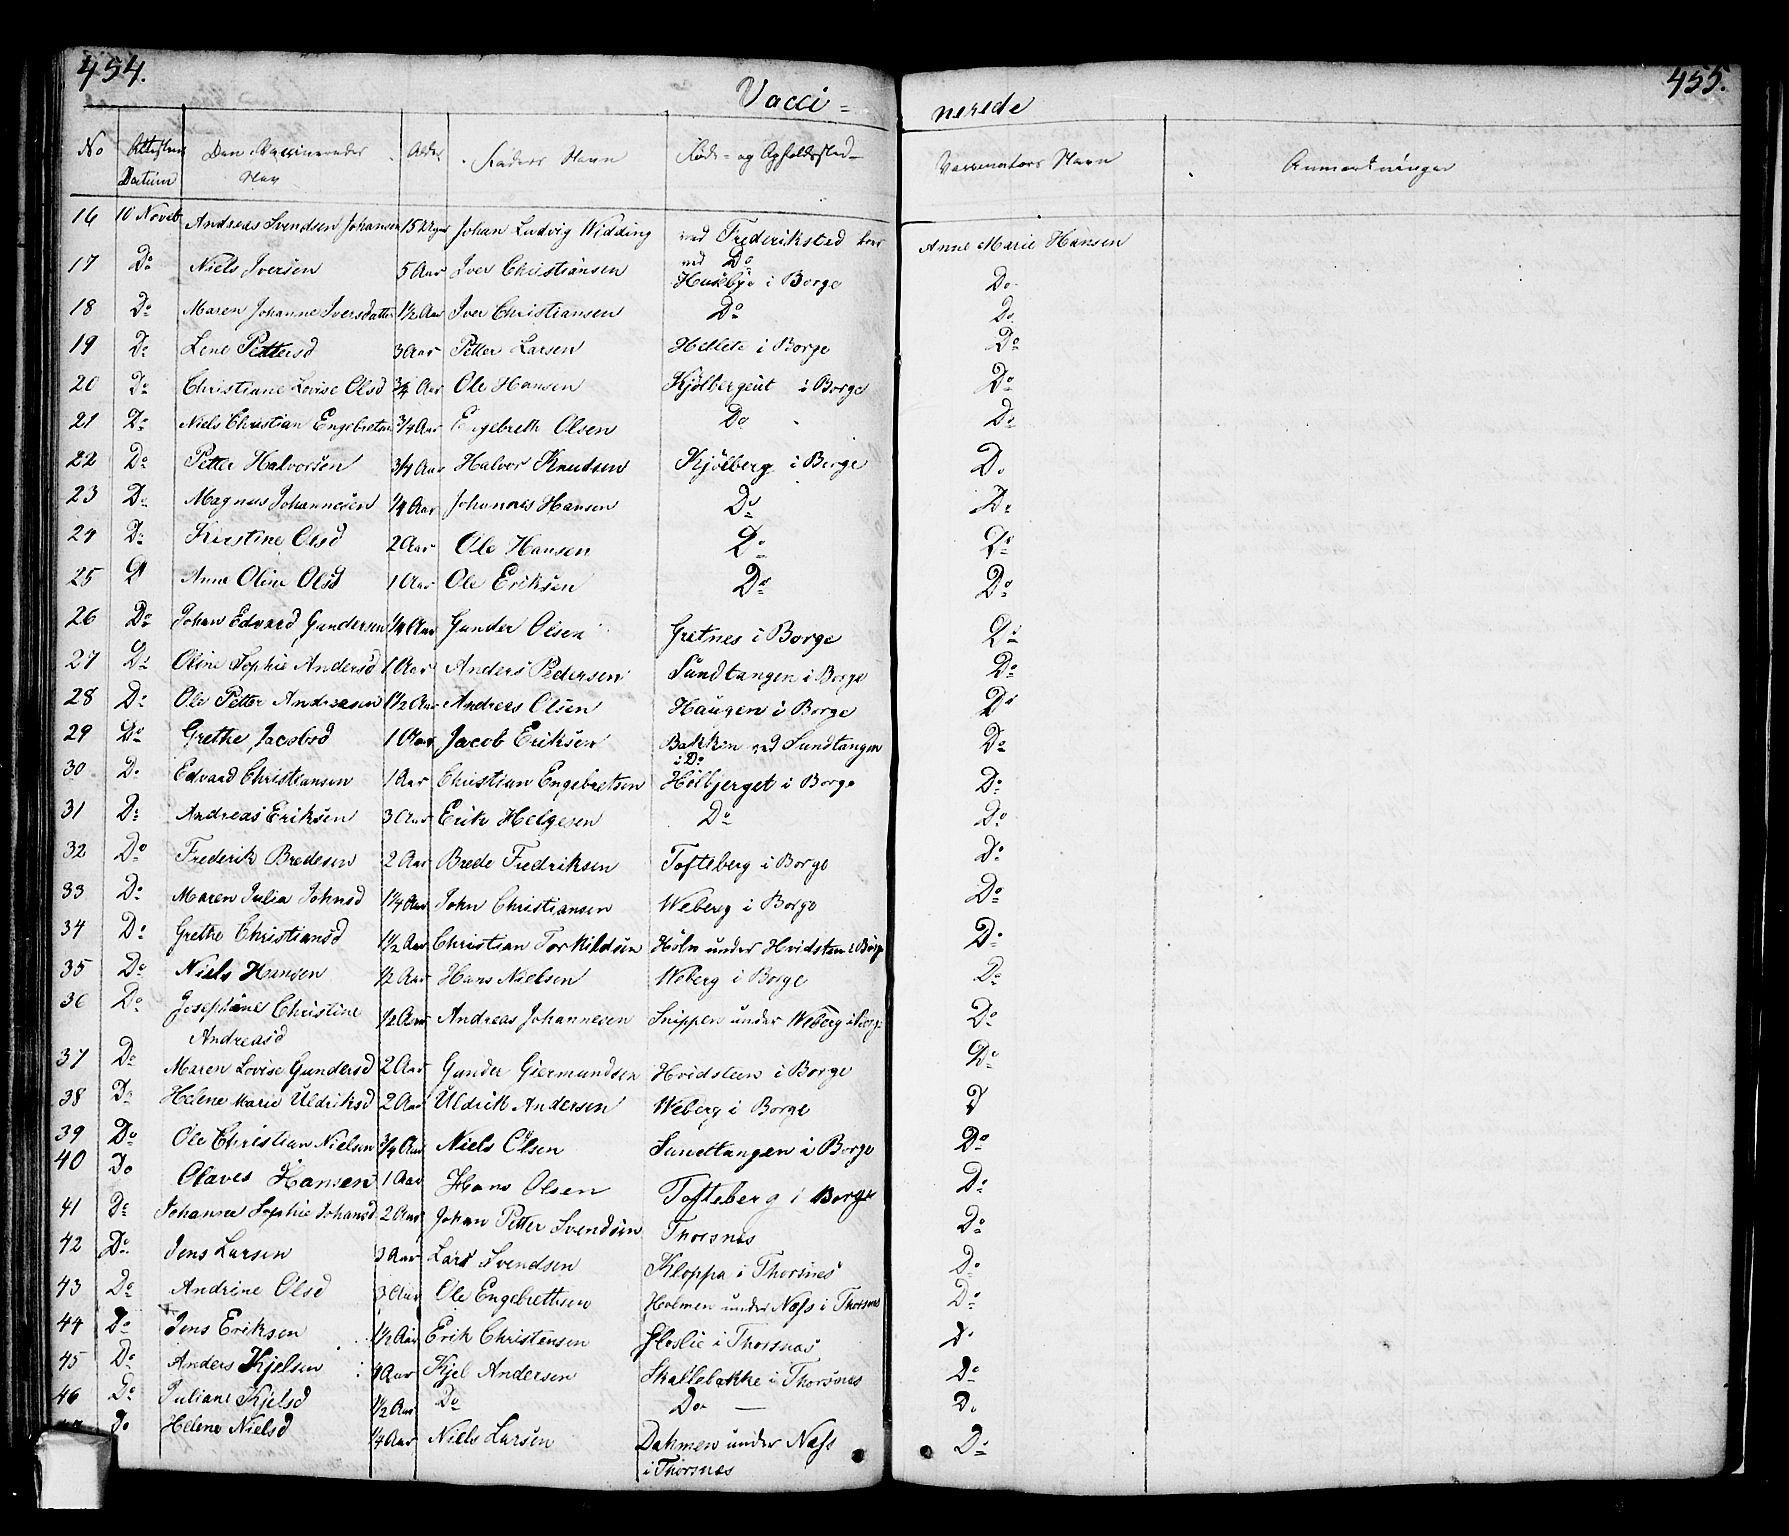 454.
455.
Vacci=
nerede
No Attestens Datum Den Vaccineredes Nav Alder Faders Navn Føde- og Opholdssted Vaccinators Navn Anmærkninger
16 10 Noveb Andreas Svendsen Johansen 15 Johan Ludvig Widding ved Frederiksted Anne Marie Hansen
17 Do Niels Iversen 5 Aar Iver Christiansen ved Do Husebye i Borge Do
18 Do Maren Johanne Iversdatter 1½ Aar Iver Christiansen Do Do
19 Do Lene Pettersd 3 Aar Petter Larsen Hellete i Borge Do
20 Do Christiane Lovise Olsd ¾ Aar Ole Hansen Kjølbergeiet i Borge Do
21 Do Niels Christian Engebretsen ¾ Aar Engebreth Olsen Do Do
22 Do Petter Halvorsen ¾ Aar Halvor Knudsen Kjølberg i Borge Do
23 Do Magnus Johannesen ¼ Aar Johannes Hansen Do Do
24 Do Kirstine Olsd 2 Aar Ole Hansen Do Do
25 D Anne Oline Olsd 1 Aar Ole Eriksen Do Do
26 Do Johan Edvard Gundersen ¼ Aar Gunder Olsen Gretnes i Borge Do
27 Do Oline Sophie Andersd 1 Aar Anders Pedersen Sundtangen i Borge Do
28 Do Ole Petter Andreasen 1½ Aar Andreas Olsen Haugen i Borge Do
29 Do Grethe Jacobsd 1 Aar Jacob Eriksen Bakken ved Sundtangen i Do Do
30 Do Edvard Christiansen 1 Aar Christian Engebretsen Holbjerget i Borge Do
31 Do Andreas Eriksen 3 Aar Erik Helgesen Do Do
32 Do Frederik Bredesen 2 Aar Brede Fredriksen Tofteberg i Borge Do
33 Do Maren Julia Johnsd 1¼ Aar John Christiansen Weberg i Borge Do
34 Do Grethe Christiansd 1½ Aar Christian Torkildsen Holm under Hvidsteen i Borge Do
35 Do Niels Hansen ½ Aar Hans Nielsen Weberg i Borge Do
36 Do Josephine Christine Andreasd ½ Aar Andreas Johannesen Snippen under Weberg i Borge Do
37 Do Maren Lovise Gundersd 2 Aar Gunder Giermundsen Hvidsteen i Borge Do
38 Do Helene Marie Uldriksd 2 Aar Uldrik Andersen Weberg i Borge D
39 Do Ole Christian Nielsen ¾ Aar Niels Olsen Sundtangen i Borge Do
40 Do Olaves Hansen 1 Aar Hans Olsen Tofteberg i Borge Do
41 Do Johanne Sophie Johansd 2 Aar Johan Petter Svendsen Thorsnes Do
42 Do Jens Larsen 3 Aar Lars Svendsen Kloppa i Thorsnes Do
43 Do Andrine Olsd 3 Aar Ole Engebrethsen Holmen under Næss i Thorsnes Do
44 Do Jens Eriksen 1½ Aar Erik Christensen i Thorsnæs Do
45 Do Anders Kjelsen 4 Aar Kjel Andersen Skallebakke i Thorsnes Do
46 Do Juliane Kjelsd 1½ Aar Do Do Do
Do Helene Nielsd ¼ Aar Niels Larsen Dahmen under Næss i Thorsnæs Do